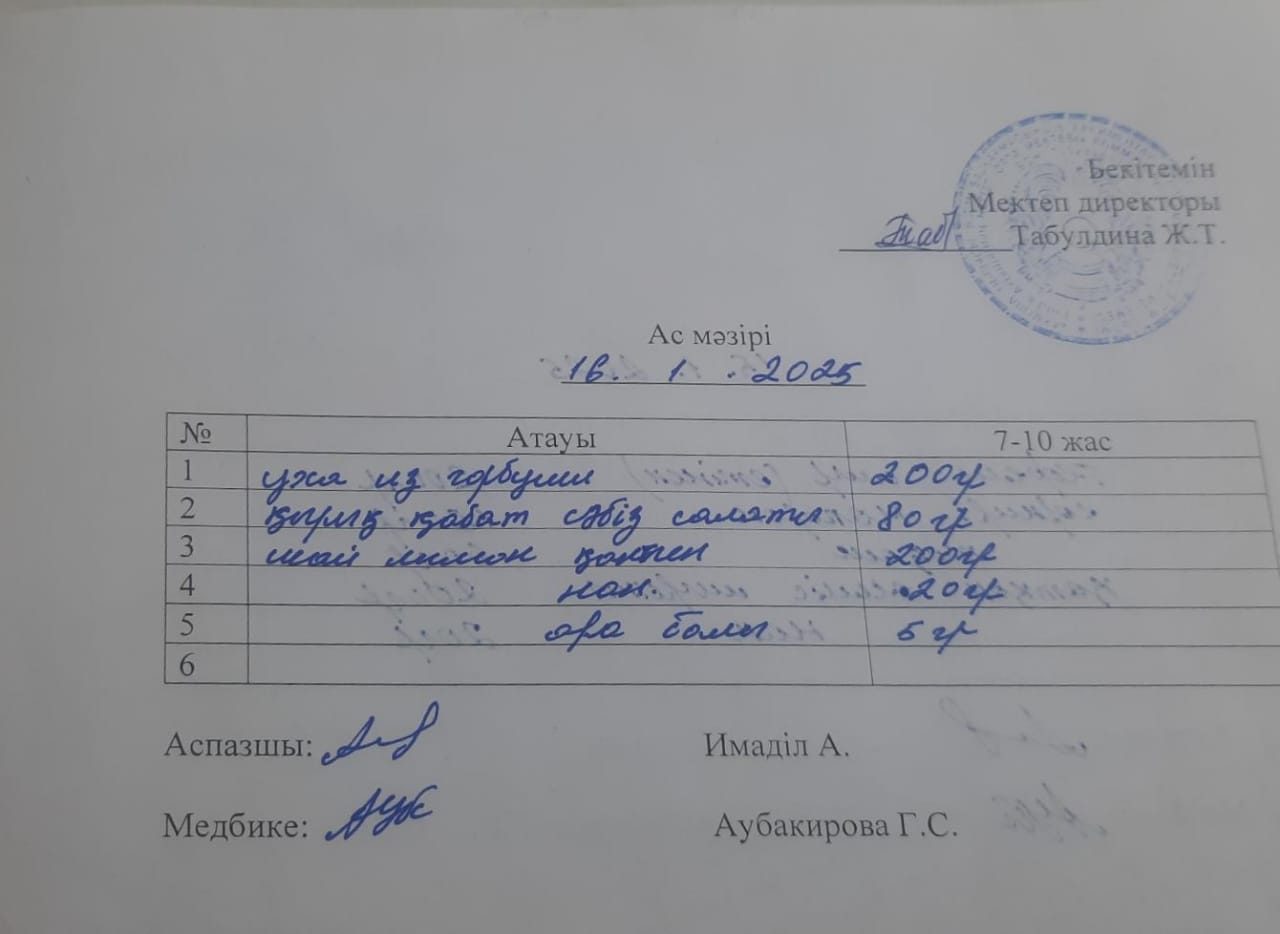 Бекітемін
Мектеп директоры
Таб Табулдина Ж.Т.
Ас мәзірі
16. 1. .2025
№ Атауы 7-10 жас
1 уха из горбуши 200гр
2 қырық қабат сәбіз салаты 80гр
3 шай лимон қантпен 200гр
4 нан. 20гр
5 ара балы 5гр
6
Аспазшы: Имаділ А.
Медбике: Ауб Аубакирова Г.С.